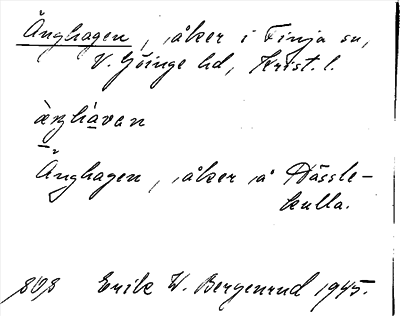 Änghagen, åker i Finja sn,
V. Göinge hd, Krist. l.
æ̀ŋhàvan
Änghagen, åker å Hässle-
kulla.
808 Erik W. Bergenrud 1945.